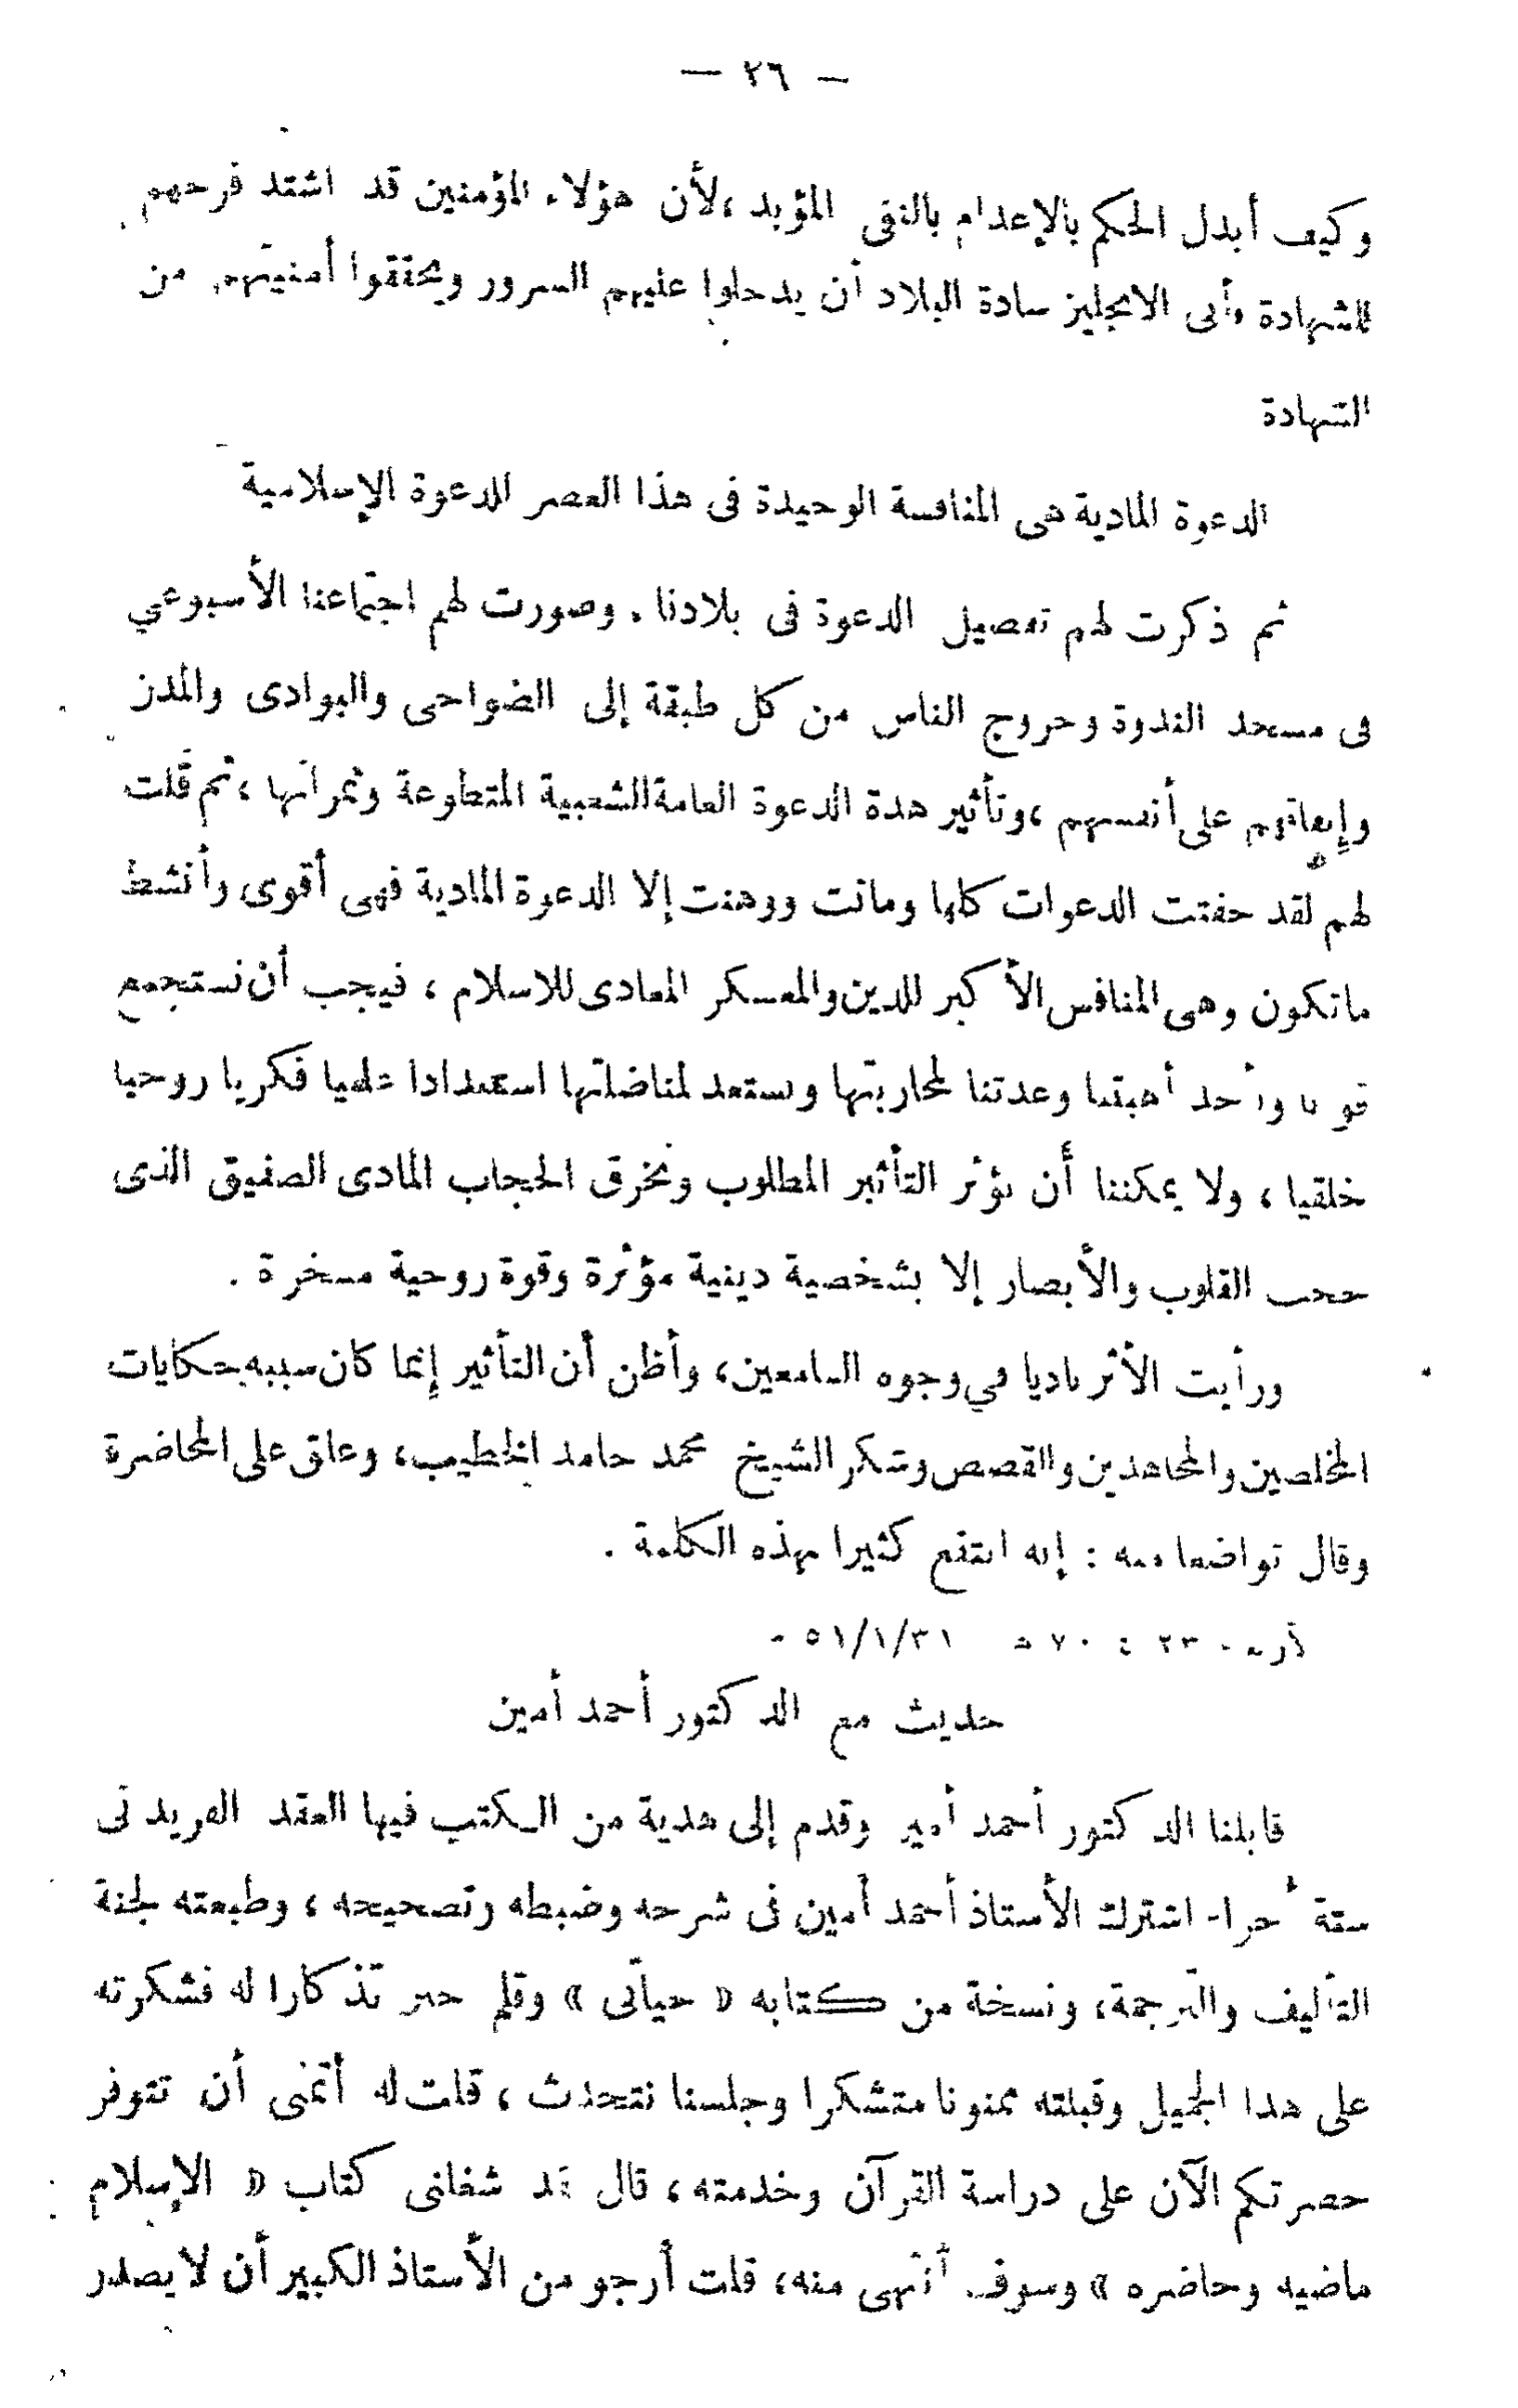 — ٢٦ —
وكيف أبدل الحكم بالإعدام بالنفى المؤبد ،لأن هؤلاء المؤمنين قد اشتد فرحهم
للشهادة وأبى الانجليز سادة البلاد أن يدخلوا عليهم السرور ويحققوا أمنيتهم من
الشهادة
الدعوة المادية هى المنافسة الوحيدة فى هذا العصر للدعوة الإسلامية
ثم ذكرت لهم تفصيل الدعوة فى بلادنا . وصورت لهم اجتماعنا الأسبوعي
فى مسجد الندوة وخروج الناس من كل طبقة إلى الضواحى والبوادى والمدن
وإنفاقهم على أنفسهم ،وتأثير هذة الدعوة العامة الشعبية المتطوعة وثمراتها ، ثم قلت
لهم لقد خفتت الدعوات كلها وماتت ووهنت إلا الدعوة المادية فهى أقوى وأنشط
ماتكون وهى المنافس الأكبر للدين والمعسكر المعادى للاسلام ، فيجب أن نستجمع
قوانا ونأخذ أهبتنا وعدتنا لمحاربتها ونستعد لمناضلتها استعدادا علميا فكريا روحيا
خلقيا ، ولا يمكننا أن نؤثر التأثير المطلوب ونخرق الحجاب المادى الصفيق الذى
حجب القلوب والأبصار إلا بشخصية دينية مؤثرة وقوة روحية مسخرة .
ورأيت الأثر باديا في وجوه السامعين، وأظن أن التأثير إنما كان سببه حكايات
المخلصين والمجاهدين والقصص وشكر الشيخ محمد حامد الخطيب، وعلق على المحاضرة
وقال تواضعا منه : إنه انتفع كثيرا بهذه الكلمة .
٢٣ ٤ ٧٠ ه ٥١/١/٣١
حديث مع الدكتور أحمد أمين
قابلنا الدكتور أحمد أمين وقدم إلى هدية من الكتب فيها العقد الفريد فى
ستة أجزاء اشترك الأستاذ أحمد أمين فى شرحه وضبطه وتصحيحه ، وطبعته لجنة
التأليف والترجمة، ونسخة من كتابه « حياتى » وقلم حبر تذكارا له فشكرته
على هذا الجميل وقبلته ممنونا متشكرا وجلسنا نتحدث ، قلت له أتمنى أن تتوفر
حضرتكم الآن على دراسة القرآن وخدمته ، قال قد شغلنى كتاب « الإسلام
ماضيه وحاضره » وسوف أنتهى منه، قلت أرجو من الأستاذ الكبير أن لا يصدر